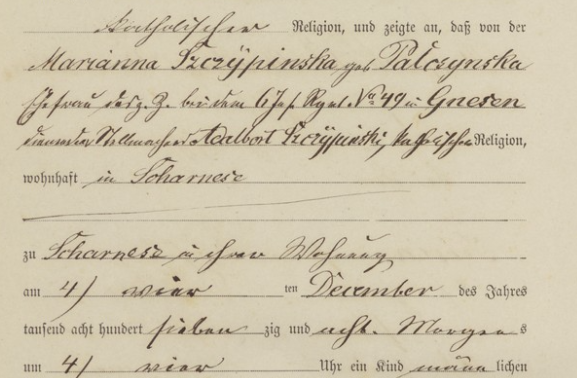 katholischer Religion, und zeigte an, daß von der
Marianna Szczÿpinska geb Palczynska
Ehefrau des z. Z. bei dem 6 Inf. Rgmt. No 49 in Gnesen
dienenden Stellmachers Adalbert Szczÿpinski, katholischer Religion,
wohnhaft in Scharnese
zu Scharnese in ihrer Wohnung
am 4/ vier ten December des Jahres
tausend acht hundert sieben zig und acht. Morgen s
um 4/ vier Uhr ein Kind männ lichen